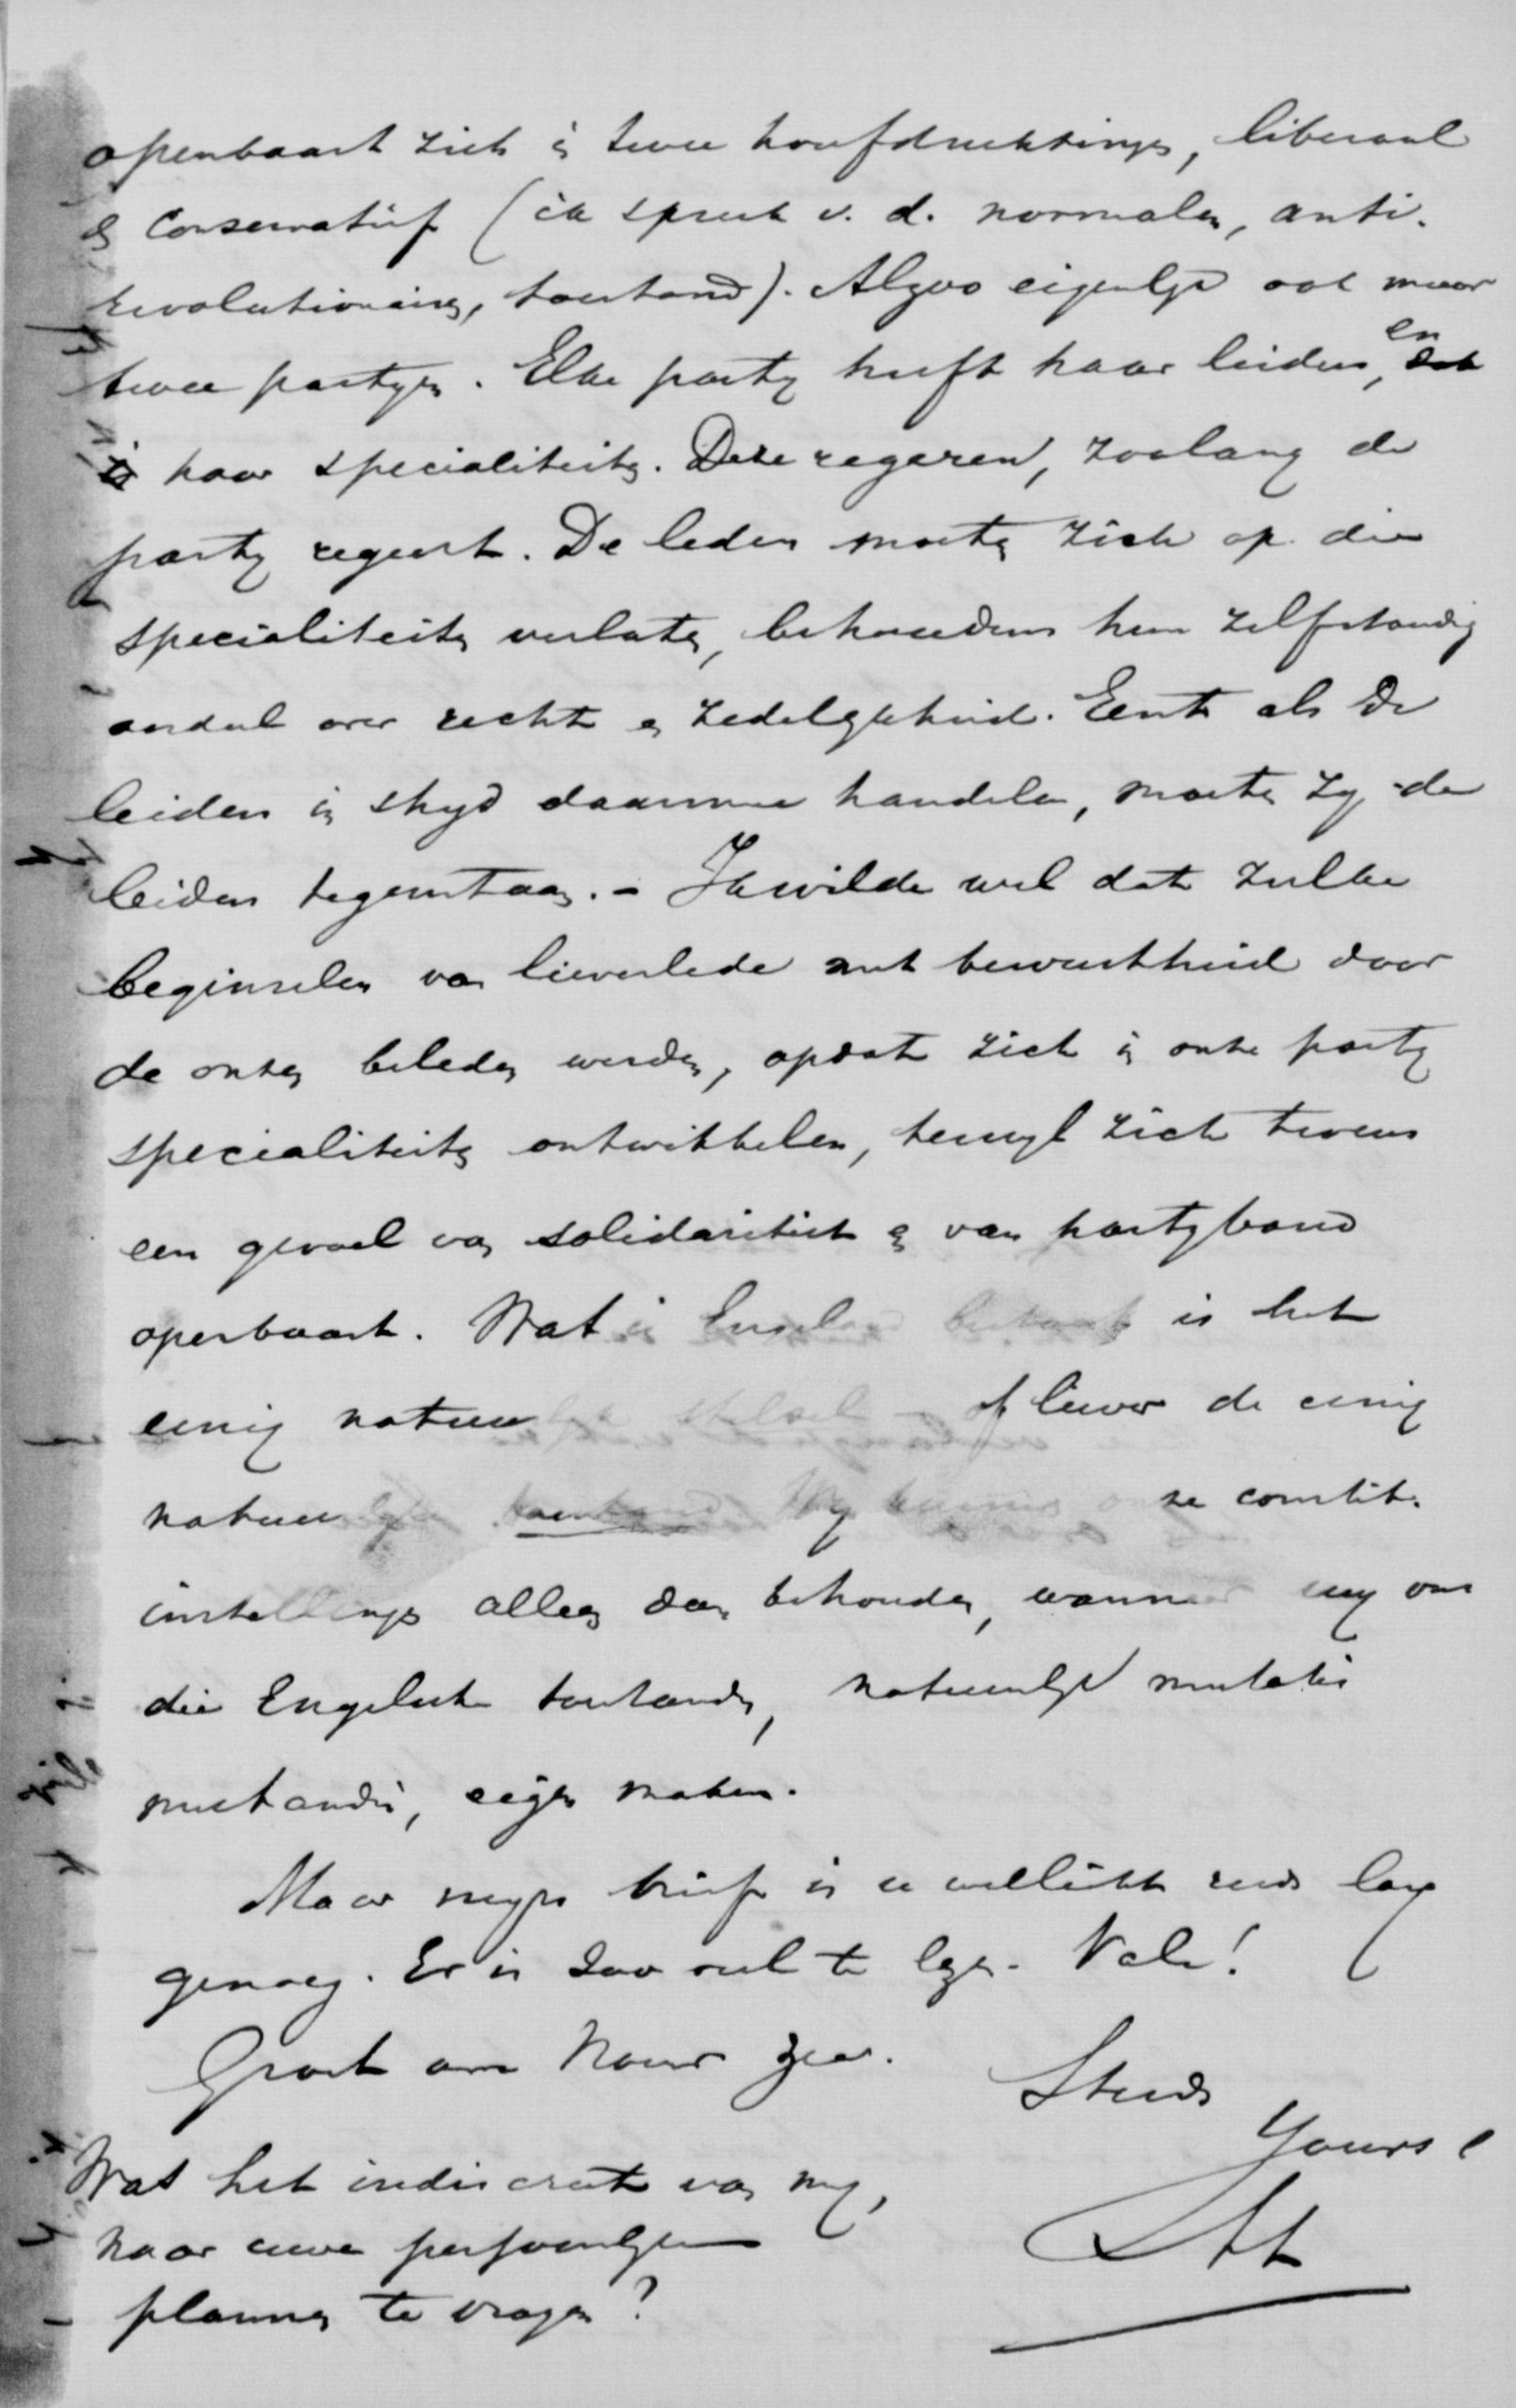 openbaart zich in twee hoofdrichtingen, liberaal
en conservatief (ik spreek v. d. normalen, anti-
revolutionairen, toestand). Alzoo eigenlijk ook maar
twee partijen. Elke partij heeft haar leiders, en
haar specialiteiten. Deze regeren, zoolang de
partij regeert. De leden moeten zich op die
specialiteiten verlaten, behoudens hun zelfstandig
oordeel over recht en zedelijkheid. Eerst als de
leiders in strijd daarmee handelen, moeten zij de
leiders tegenstaan. - Ik wilde wel dat zulke
beginselen van lieverlede met bewustheid door
de onzen beleden werden, opdat zich in onze partij
specialiteiten ontwikkelen, terwijl zich tevens
een gevoel van solidariteit en van partijband
openbaart. Wat in Engeland bestaat is het
eenig natuurlijk stelsel - of liever de eenig
natuurlijke toestand. Wij kunnen onze constit.
instellingen alleen dan behouden, wanneer wij ons
die Engelsche toestanden, natuurlijk mutatis
mutandis, eigen maken.
Maar mijn brief is u wellicht reeds lang
genoeg. Er is zoo veel te lezen. Vale!
Groet
Steeds
Yours
Was het indiscreet van mij,
naar uwe persoonlijke
plannen te vragen?